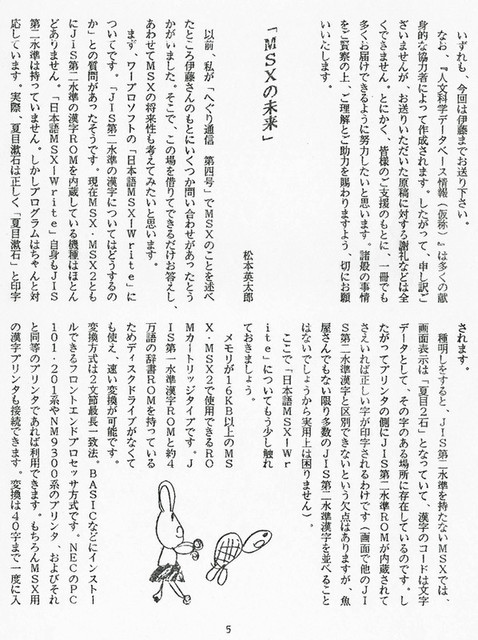 いずれも、今回は伊藤までお送り下さい。
なお、『人文科学データベース情報（仮称）』は多くの献
身的な協力者によって作成されます。したがって、申し訳ご
ざいませんが、お送りいただいた原稿に対する謝礼などは全
くできません。とにかく、皆様のご支援のもとに、一冊でも
多くお届けできるように努力したいと思います。諸般の事情
をご賢察の上、ご理解とご助力を賜わりますよう、切にお願
いいたします。
「MSXの未来」
松本英太郎
以前、私が「へぐり通信　第四号」でMSXのことを述べ
たところ伊藤さんのもとにいくつか問い合わせがあったとう
かがいました。そこで、この場を借りてできるだけお答えし、
あわせてMSXの将来性も考えてみたいと思います。
まず、ワープロソフトの「日本語MSX-Write」に
ついてです。「JIS第二水準の漢字についてはどうするの
か」との質問があったそうです。現在MSX・MSX2とも
にJIS第二水準の漢字ROMを内蔵している機種はほとん
どありません。「日本語MSX-Write」自身もJIS
第二水準は持っていません。しかしプログラムはちゃんと対
応しています。実際、夏目漱石は正しく「夏目漱石」と印字
されます。
種明しをすると、JIS第二水準を持たないMSXでは、
画面表示は「夏目２石」となっていて、漢字のコードは文字
データとして、その字のある場所に存在しているのです。し
たがってプリンタの側にJIS第二水準ROMが内蔵されて
さえいれば正しい字が印字されるわけです（画面で他のJI
S第二水準漢字と区別できないという欠点はありますが、魚
屋さんでもない限り多数のJIS第二水準漢字を並べること
はないでしょうから実用上は困りません）。
ここで「日本語MSX-Wr
ite」についてもう少し触れ
ておきましょう。
メモリが16KB以上のMS
X・MSX2で使用できるRO
Mカートリッジタイプです。J
IS第一水準漢字ROMと約4
万語の辞書ROMを持っている
ためディスクドライブがなくて
も使え、速い変換が可能です。
変換方式は2文節最長一致法。BASICなどにインストー
ルできるフロントエンドプロセッサ方式です。NECのPC
101・201系やNM9300系のプリンタ、およびそれ
と同等のプリンタであれば利用できます。もちろんMSX用
の漢字プリンタも接続できます。変換は40字まで一度に入
5